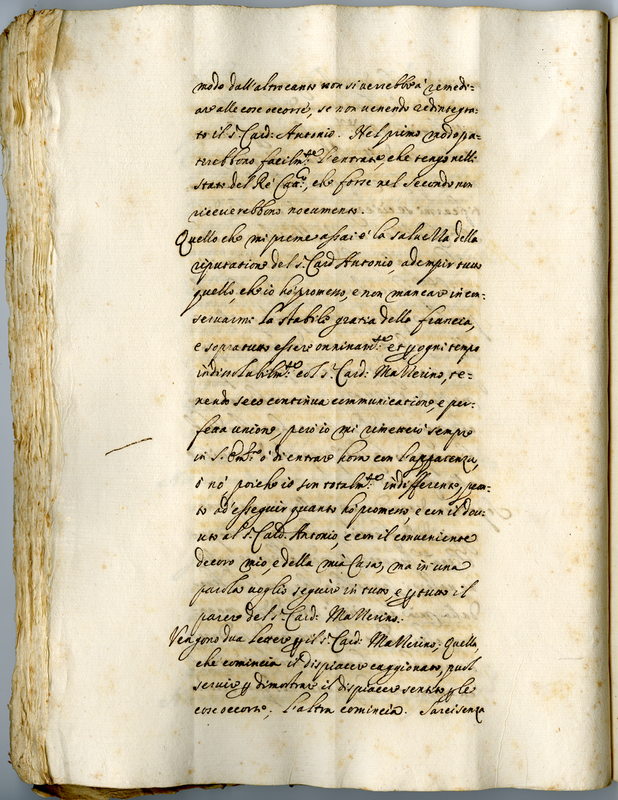 modo dall'altro canto non si verrebbe à remedi-
are alle cose occorse, se non venendo redintegra-
to il s.r Card: Antonio. Nel primo modo pa-
tirebbono facilm.te l'entrate, che tengo nelli
stati del Rè Catt.co, che forse nel secondo non
riceverebbono nocumento.
Quello che mi preme assai è la salvezza della
riputatione del s.r Card Antonio, adempir tutto
quello, che io hò promesso, e non mancare in con-
servarmi la stabile gratia della francia,
e sopratutto essere onninam.te et p ogni tempo
indissolubilm.te col s.r Card: Mazzerino, te-
nendo seco continua communicatione, e per-
fetta unione, però io mi rimetterò sempre
in S. Em.za ò di entrare hora con l'apparenza,
ò nò poiche io son totalm.te indifferente, pron-
to ad esseguir quanto hò promesso, e con il dou-
uto al s.r Card. Antonio, e con il conveniente
decoro mio, e della mia Casa, ma in una
parola voglio seguire in tutto, e p tutto il
parere del s.r Card: Mazzerino.
Vengono due lettere p il s.r Card: Mazzerino, quella,
che comincia il dispiacere caggionato, può
servire p dimostrare il dispiacere sentito p le
cose occorse; l'altra comincia. Sarei senza